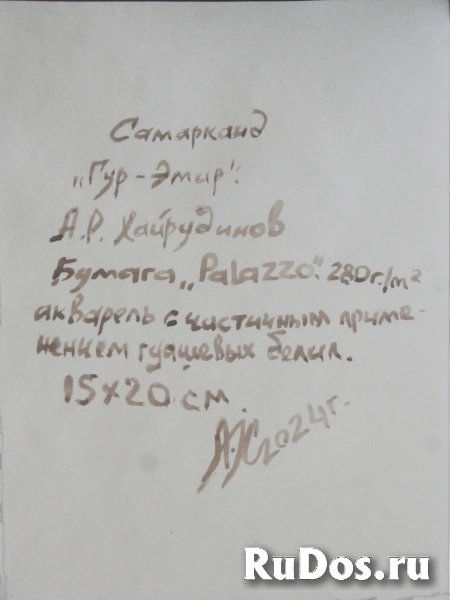 Самарканд
„Гур-Эмир".
А.Р. Хайрудинов
Бумага „Palazzo". 280г./m²
акварель с частичным приме-
нением гуашевых белил.
15x20 см.
А.Х 2024г.
RuDos.ru